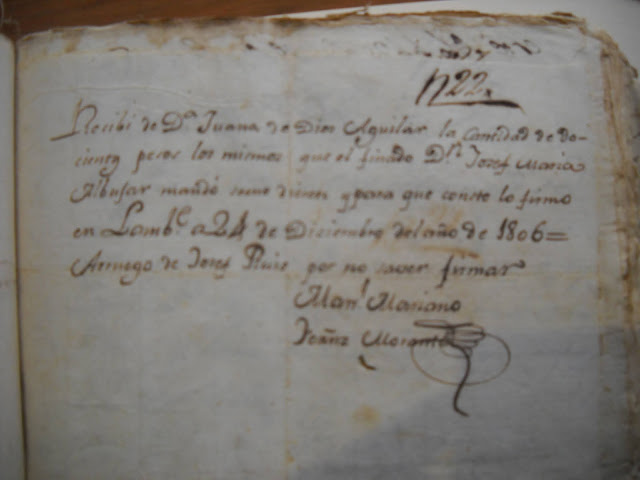 N 22.
Recibi de D.ª Juana de Dios Aguilar la Cantidad de do-
cientos pesos los mismos que el finado D.n Josef Maria
Albujar mandó se me diesen, y para que conste lo firmo
en Lamb.e a 24 de Diciembre del año de 1806=
Arruego de Josef Ruiz por no saver firmar
Man.l Mariano
Morante